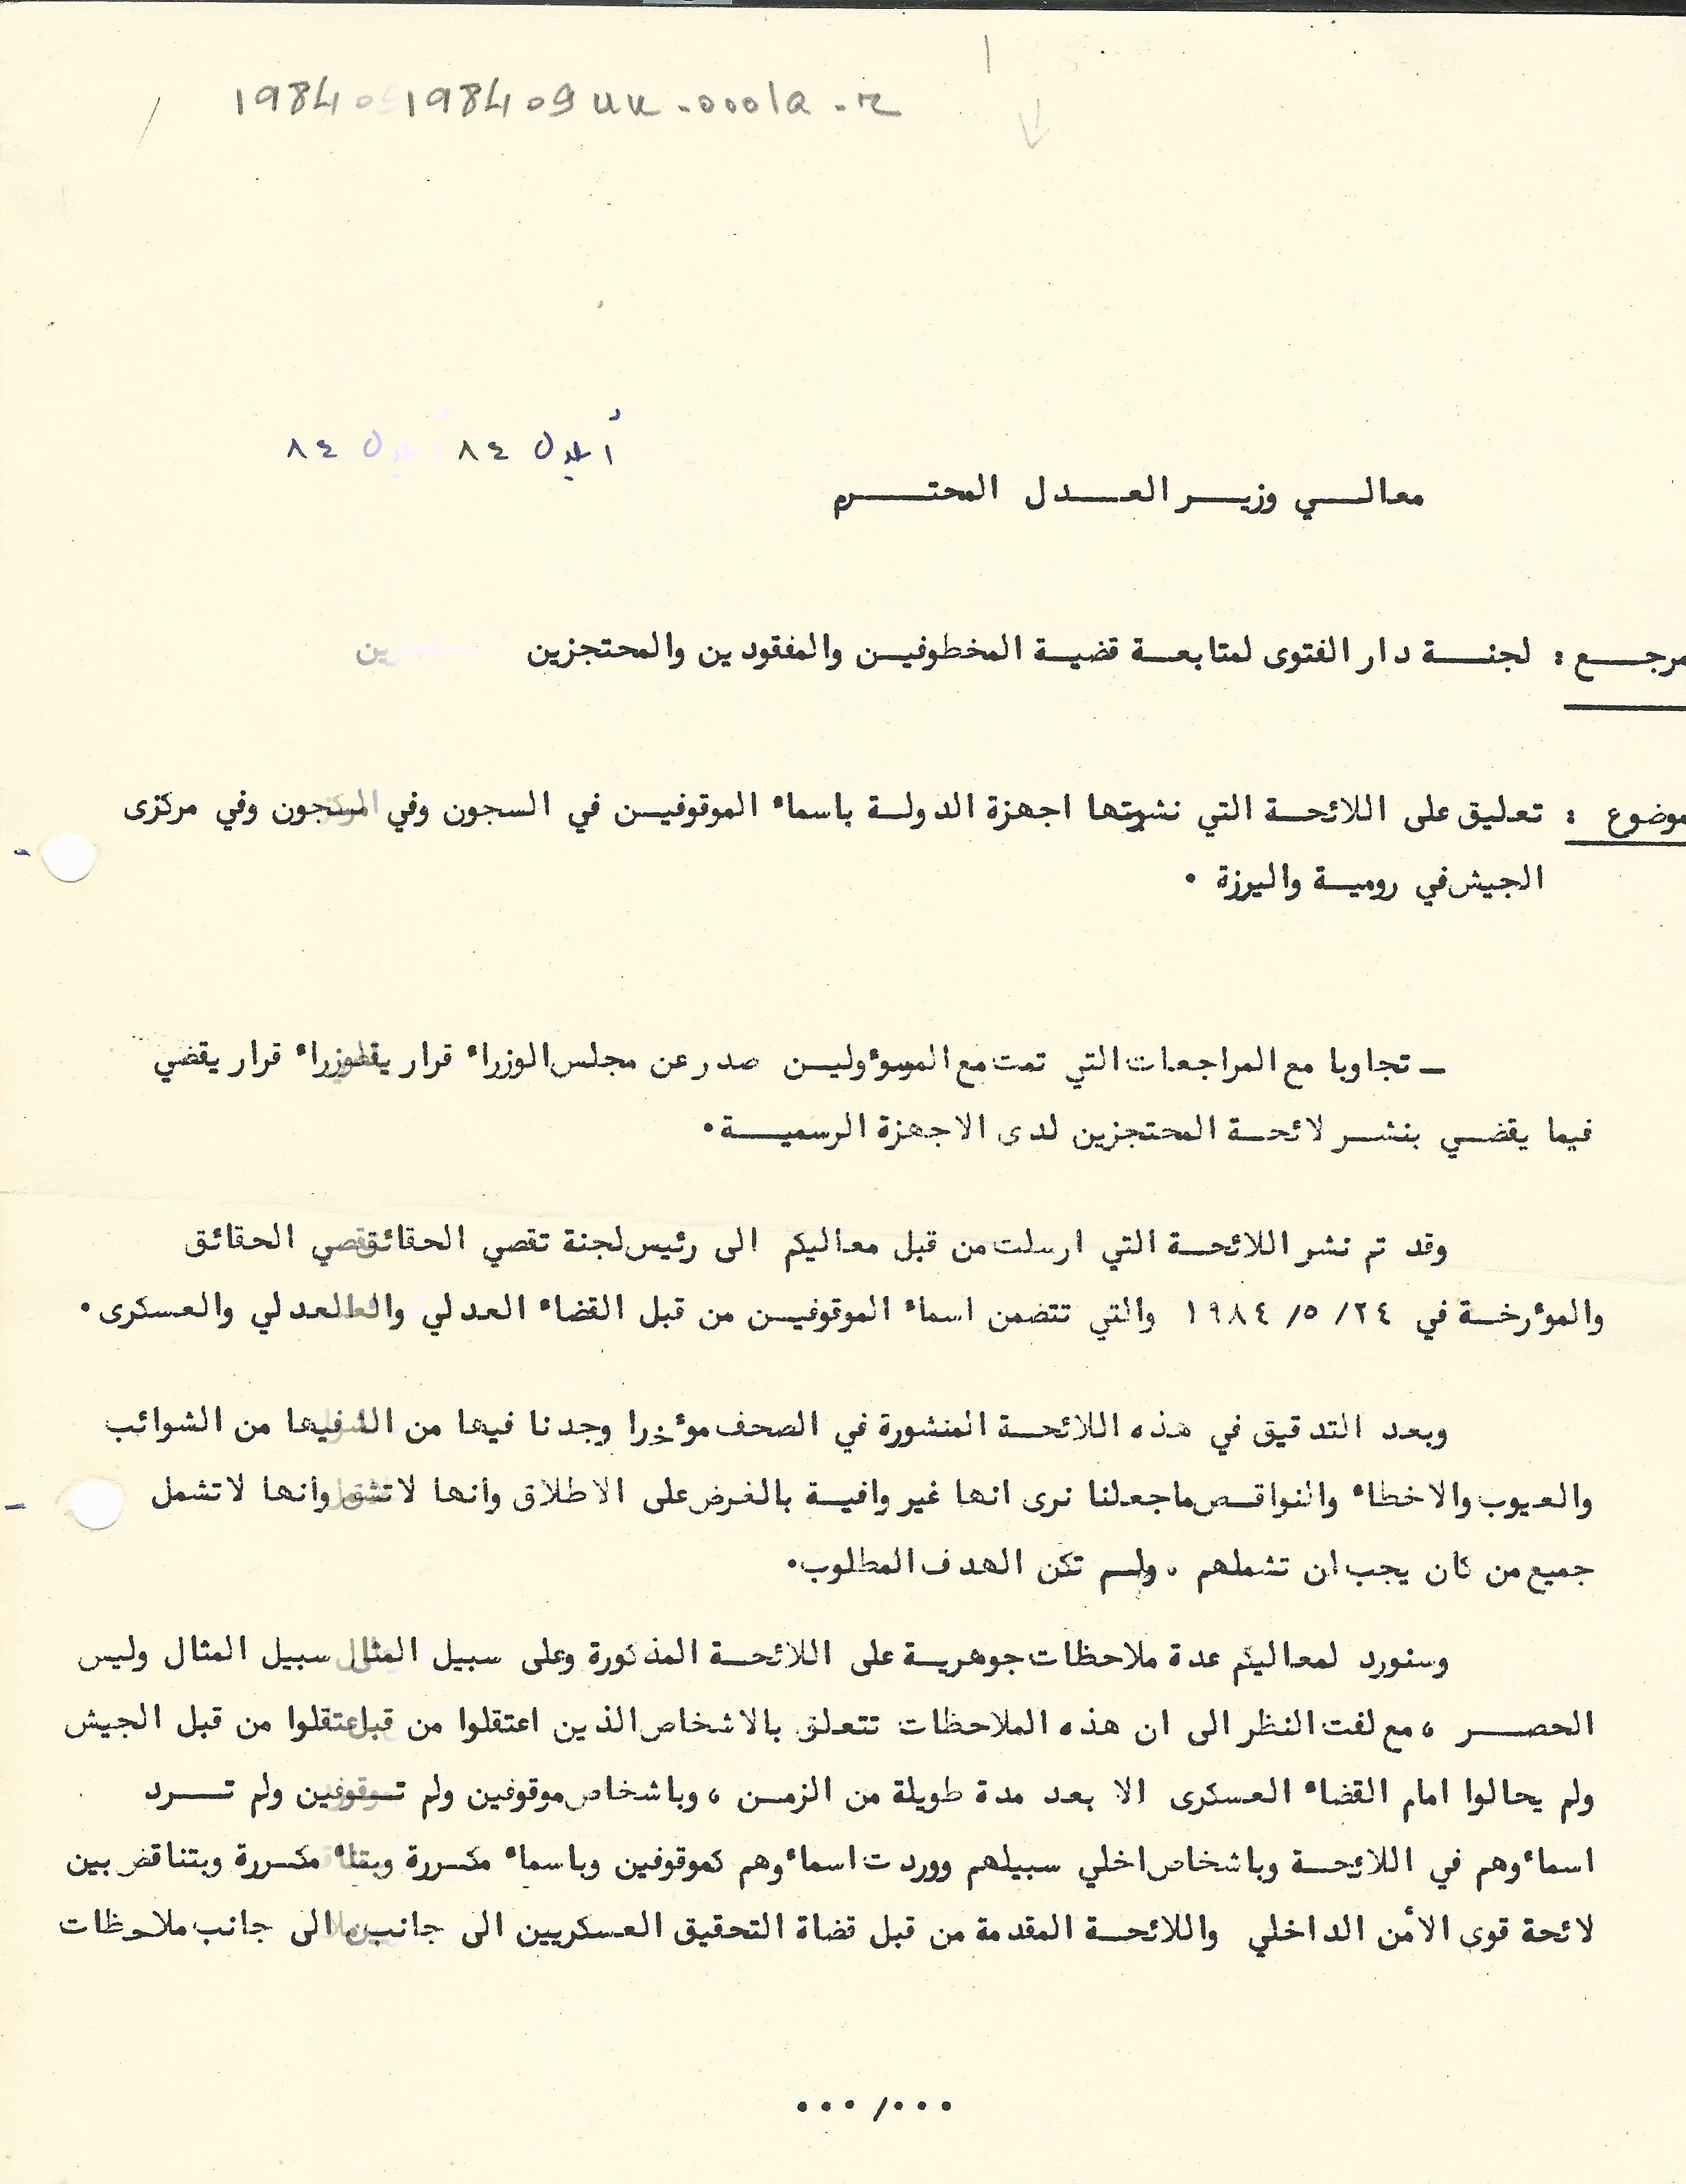 198409uu-0001a-r
أيلول ٨٤
معالي وزير العدل المحترم
مرجع : لجنة دار الفتوى لمتابعة قضية المخطوفين والمفقودين والمحتجزين
موضوع : تعليق على اللائحة التي نشرتها اجهزة الدولة باسماء الموقوفين في السجون وفي مركزى
الجيش في رومية واليرزة .
ــ تجاوبا مع المراجعات التي تمت مع المسوءولين صدر عن مجلس الوزراء قرار يقضي
فيما يقضي بنشر لائحة المحتجزين لدى الاجهزة الرسمية .
وقد تم نشر اللائحة التي ارسلت من قبل معاليكم الى رئيس لجنة تقصي الحقائق
والموءرخة في ٢٤ /٥ /١٩٨٤ والتي تتضمن اسماء الموقوفين من قبل القضاء العدلي والعسكرى .
وبعد التدقيق في هذه اللائحة المنشورة في الصحف موءخرا وجدنا فيها من الشوائب
والعيوب والاخطاء والنواقص ما جعلنا نرى انها غير وافية بالغرض على الاطلاق وانها لا تشمل
جميع من كان يجب ان تشملهم ، ولم تكن الهدف المطلوب .
وسنورد لمعاليكم عدة ملاحظات جوهرية على اللائحة المذكورة وعلى سبيل المثال وليس
الحصر ، مع لفت النظر الى ان هذه الملاحظات تتعلق بالاشخاص الذين اعتقلوا من قبل الجيش
ولم يحالوا امام القضاء العسكرى الا بعد مدة طويلة من الزمن ، وباشخاص موقوفين ولم تــرد
اسماءوهم في اللائحة وباشخاص اخلي سبيلهم ووردت اسماءوهم كموقوفين وباسماء مكررة وبتناقض بين
لائحة قوى الأمن الداخلي واللائحة المقدمة من قبل قضاة التحقيق العسكريين الى جانب ملاحظات
... / ...